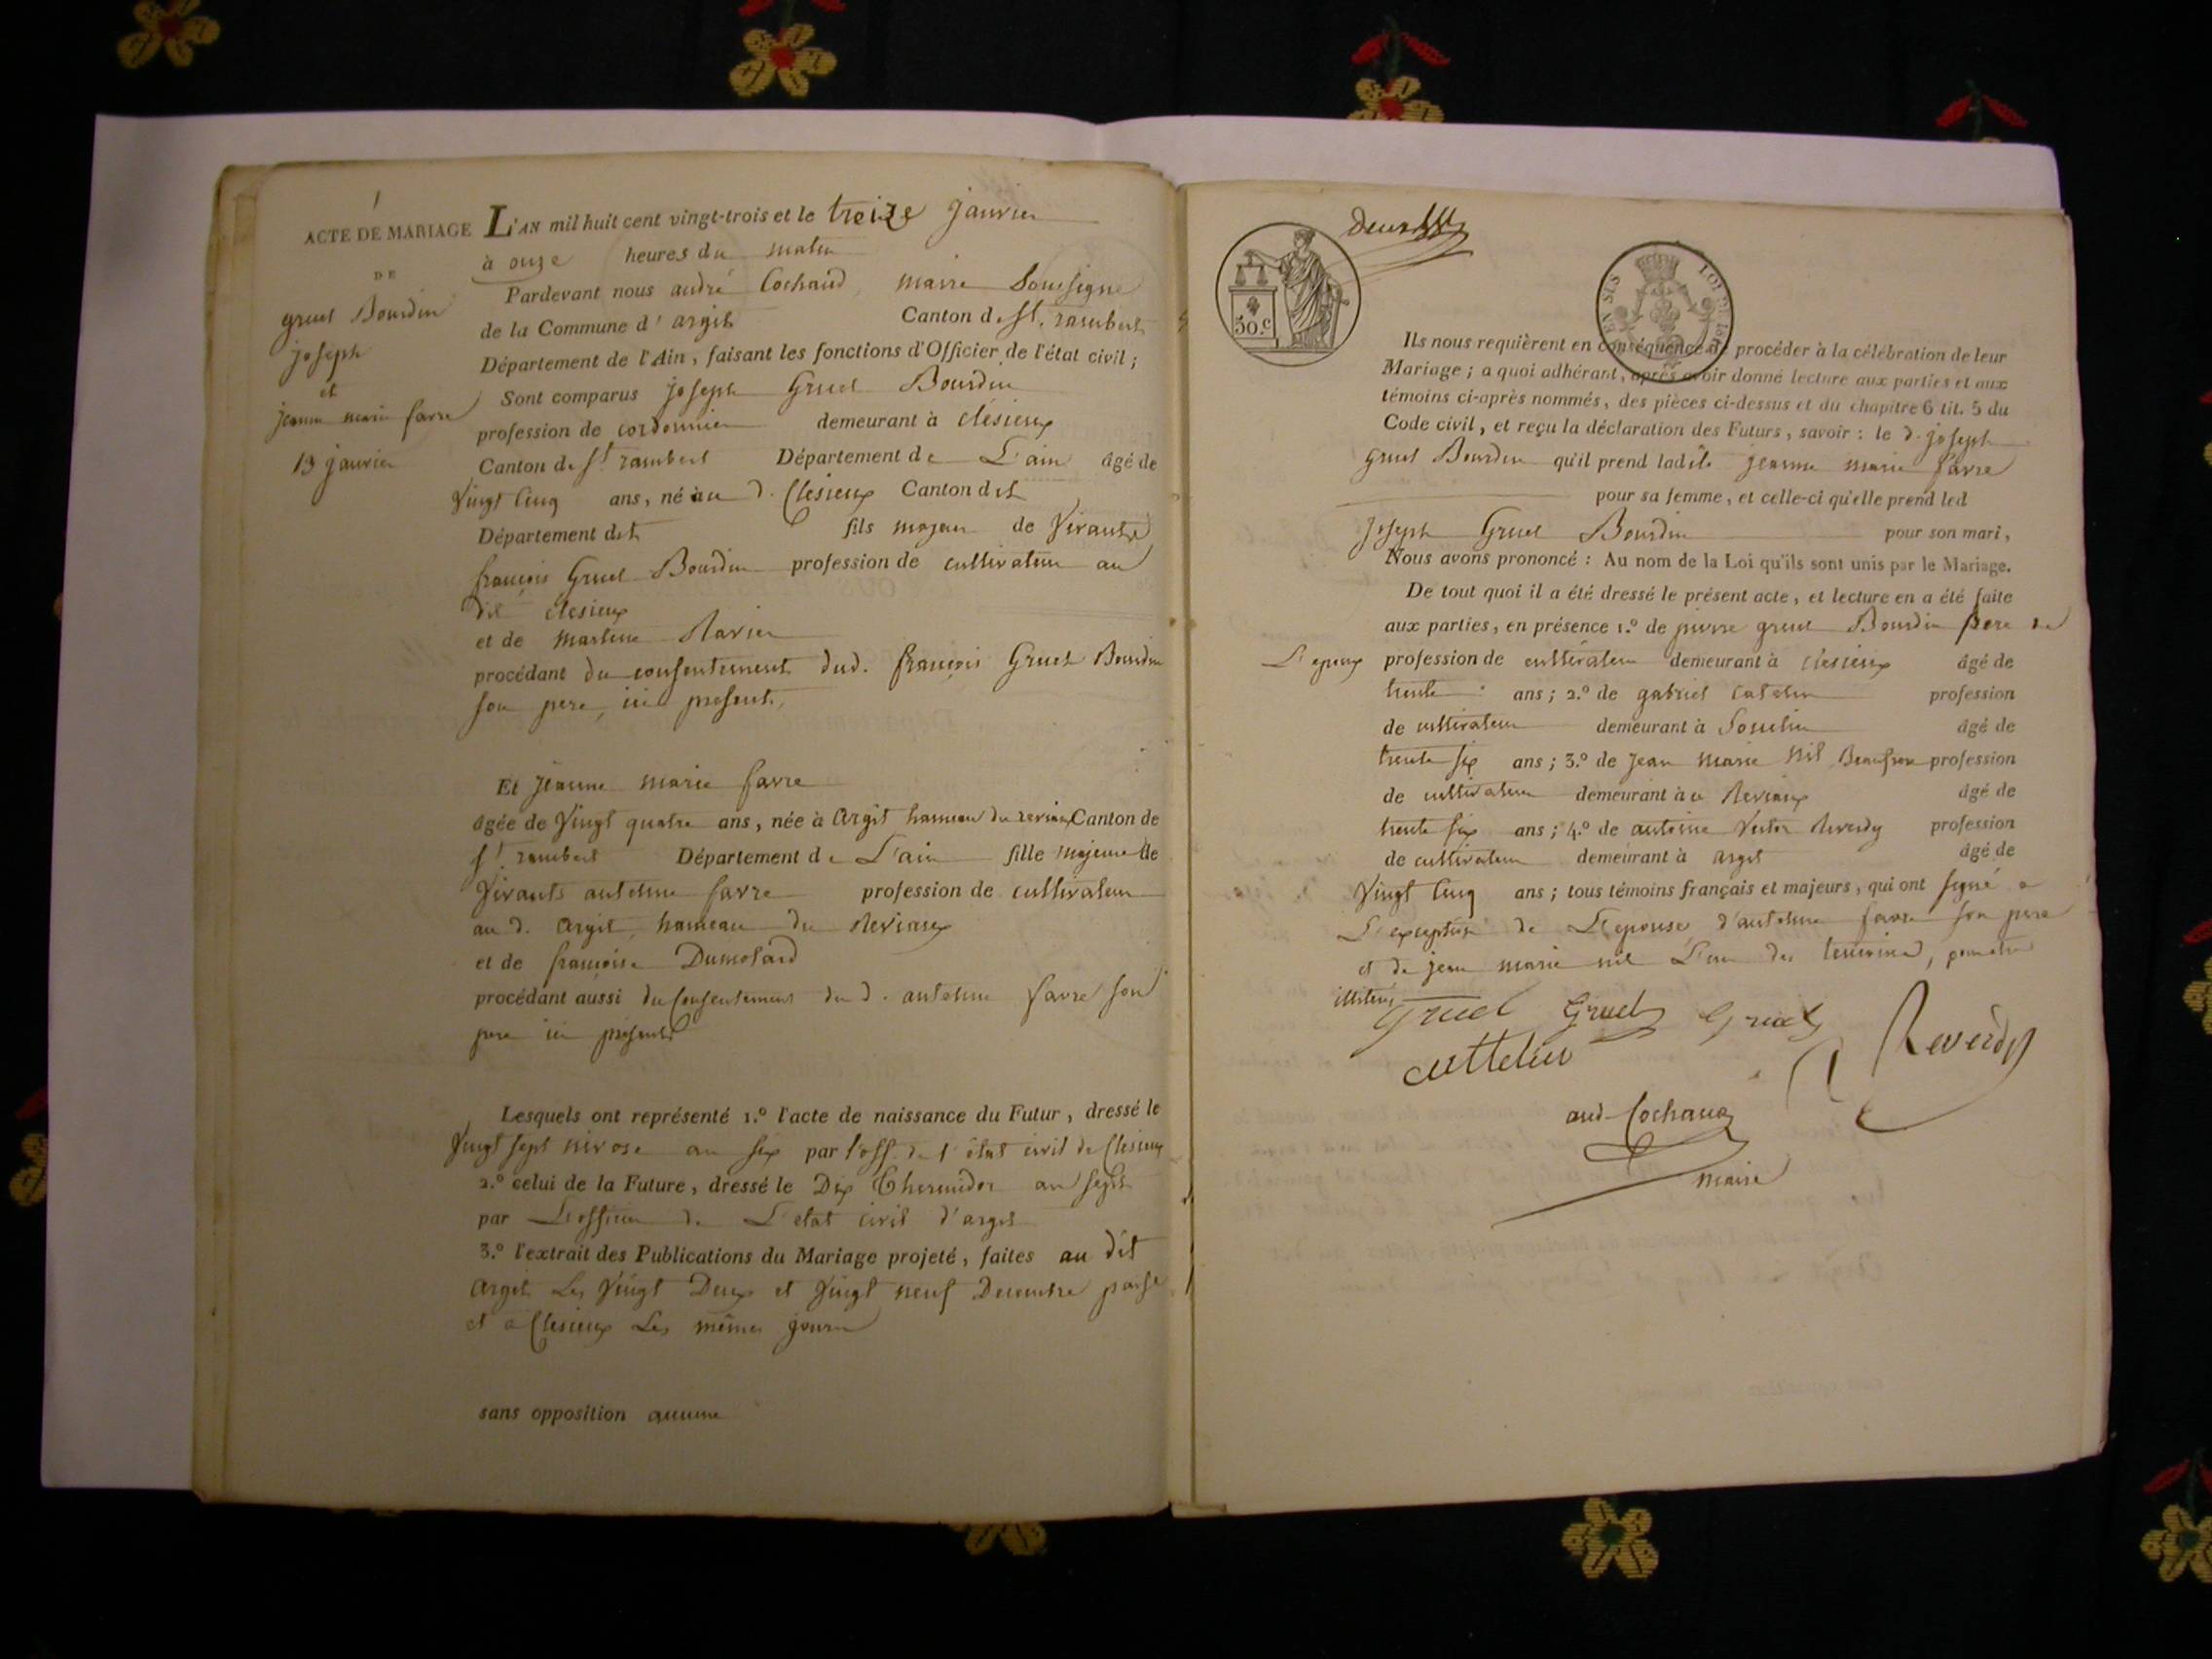 1
ACTE DE MARIAGE
DE
gruel Bourdin
joseph
et
jeanne marie favre
13 janvier
L'AN mil huit cent vingt-trois et le treize janvier
à onze heures du matin
Pardevant nous andré Cochaud, maire Soussigné
de la Commune d'argit Canton de St. rambert
Département de l'Ain, faisant les fonctions d'Officier de l'état civil;
Sont comparus joseph Gruel Bourdin
profession de cordonnier demeurant à clésieux
Canton de St. rambert Département de L'ain âgé de
Vingt Cinq ans, né au d. Clesieux Canton dit
Département dit fils majeur de Vivants
françois Gruel Bourdin profession de cultivateur au
dit clesieux
et de Ravier
procédant du consentement dud. françois Gruel Bourdin
son pere, ici présent,
Et jeanne marie favre
âgée de Vingt quatre ans, née à Argit hameau du reviaux Canton de
St. rambert Département de L'ain fille majeure de
Vivants antelme favre profession de cultivateur
au d. Argit, hameau du Reviaux
et de françoise Dumolard
procédant aussi du Consentement du d. antelme favre son
pere ici présent
Lesquels ont représenté 1.º l'acte de naissance du Futur, dressé le
Vingt sept nivose an six par l'off. de l'état civil de Clesieux
2.º celui de la Future, dressé le Dix Thermidor an sept
par L'officier de L'etat civil d'argit
3.º l'extrait des Publications du Mariage projeté, faites au dit
Argit Les Vingt Deux et Vingt neuf Decembre passé
et a Clesieux Les mêmes jours
sans opposition aucune
50.C
EN SUS LOI DE
Ils nous requièrent en conséquence de procéder à la célébration de leur
Mariage; a quoi adhérant, après avoir donné lecture aux parties et aux
témoins ci-après nommés, des pièces ci-dessus et du chapitre 6 tit. 5 du
Code civil, et reçu la déclaration des Futurs, savoir: le d. joseph
Gruel Bourdin qu'il prend ladite jeanne marie favre
pour sa femme, et celle-ci qu'elle prend led
joseph Gruel Bourdin pour son mari,
Nous avons prononcé: Au nom de la Loi qu'ils sont unis par le Mariage.
De tout quoi il a été dressé le présent acte, et lecture en a été faite
aux parties, en présence 1.º de pierre gruel Bourdin frere de
L'epoux profession de cultivateur demeurant à clesieux âgé de
trente ans; 2.º de gabriel catelin profession
de cultivateur demeurant à Souclin âgé de
trente six ans; 3.º de jean marie Nil profession
de cultivateur demeurant au Reviaux âgé de
trente six ans; 4.º de antoine Victor Reverdy profession
de cultivateur demeurant à argit âgé de
Vingt Cinq ans; tous témoins français et majeurs, qui ont signé a
L'exception de L'epouse, d'antelme favre son pere
et de jean marie nil L'un des temoins, pour être
illiterés
Gruel Gruel Gruel
Reverdy
cattelin
and. Cochaud
maire